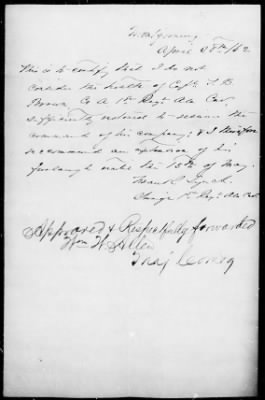 Montgomery
April 28th /62
This is to certify that I do not
consider the health of Capt. T. B.
Brown, Co A 1st Regt Ala Cav.
sufficiently restored to resume the
command of his company; & I therefore
recommend an extension of his
furlough until the 15th of May.
Frank L. Lynch
Surg 1st Regt Ala Cav.
Approved & Respectfully forwarded
Wm W. Allen
Maj Comdg